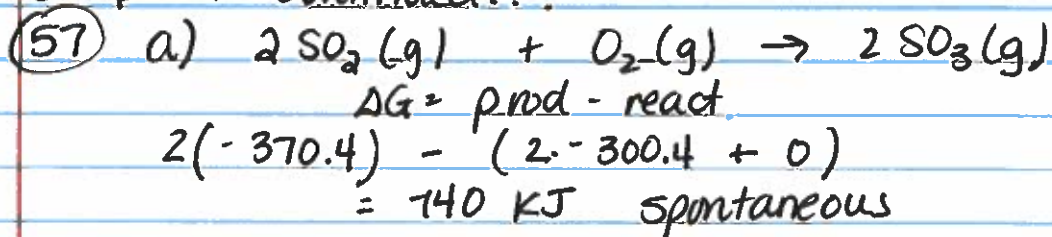 57 a) 2 SO₂ (g) + O₂ (g) → 2 SO₃ (g)
ΔG = prod - react.
2(-370.4) - (2·-300.4 + 0)
= 140 KJ spontaneous